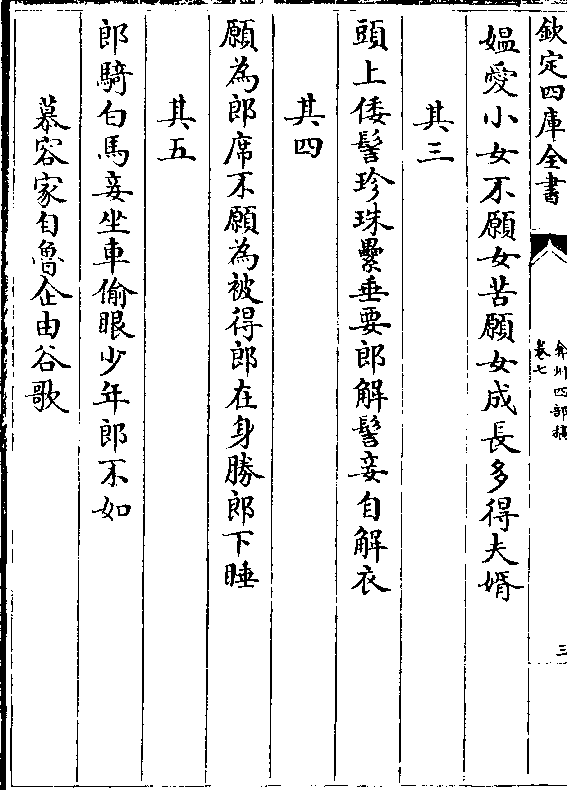 欽定四庫全書
弇州四部稿
卷七
三
媼愛小女不願女苦願女成長多得夫婿
其三
頭上倭髻珍珠纍垂要郎解髻妾自解衣
其四
願為郎席不願為被得郎在身勝郎下睡
其五
郎騎白馬妾坐車偷眼少年郎不如
慕容家自魯企由谷歌